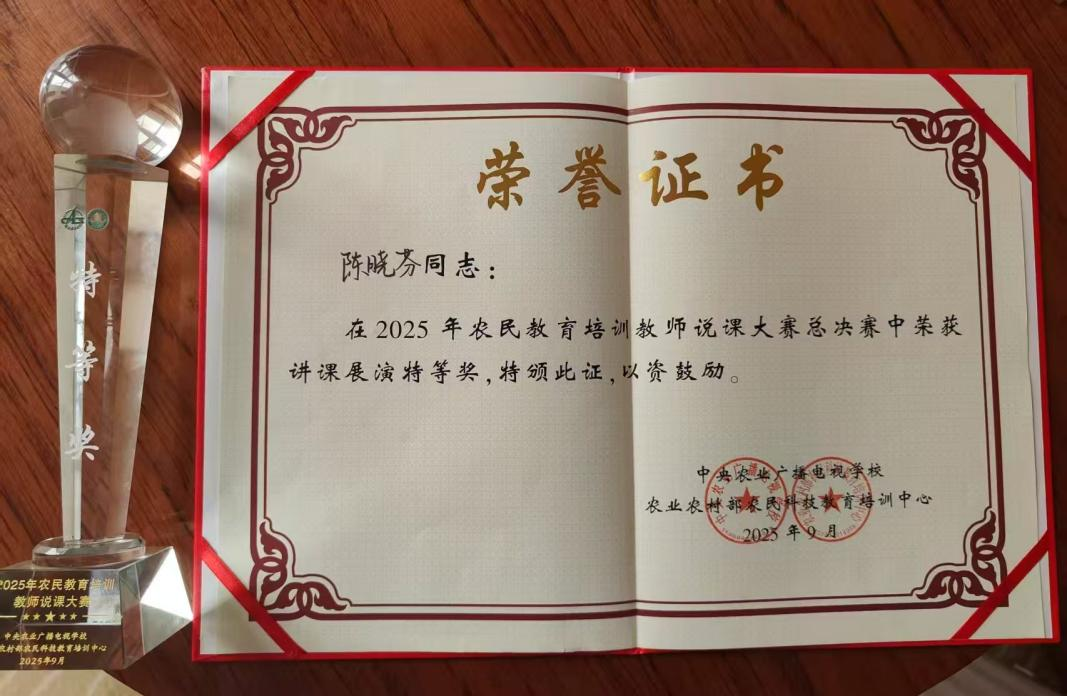 特
等
奖
2025年农民教育培训
教师说课大赛
中央农业广播电视学校
农村部农民科技教育培训中心
2025年9月
荣誉证书
陈晓芬同志:
在2025年农民教育培训教师说课大赛总决赛中荣获
讲课展演特等奖,特颁此证,以资鼓励。
中央农业广播电视学校
农业农村部农民科技教育培训中心
2025年9月